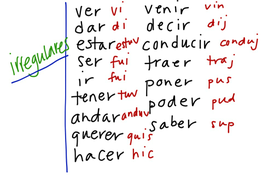 irregulares
ver vi
dar di
estar estuv
ser fui
ir fui
tener tuv
andar anduv
querer quis
hacer hic
venir vin
decir dij
conducir conduj
traer traj
poner pus
poder pud
saber sup